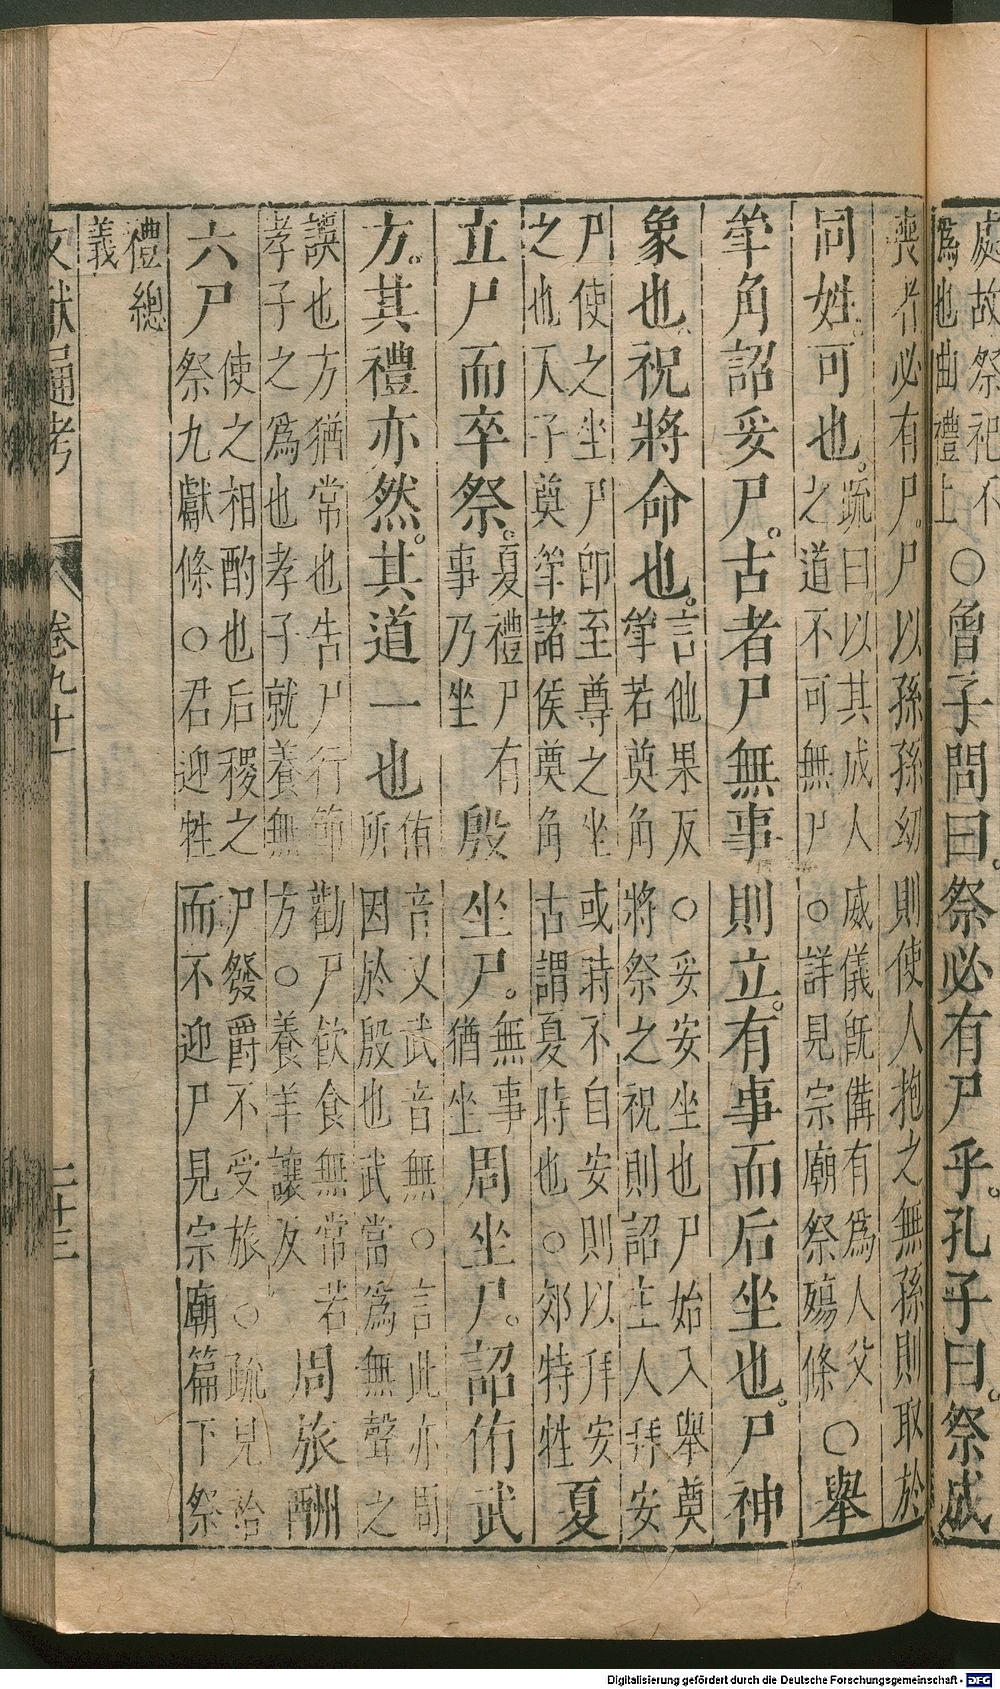 處故祭祀不
爲也曲禮上
○曾子問曰。祭必有尸乎。孔子曰。祭成
喪者必有尸。尸以孫孫幼則使人抱之無孫則取於
同姓。可也。
疏曰以其成人威儀旣備有爲人父
之道不可無尸○詳見宗廟祭殤條
○舉
斝角詔妥尸。古者尸無事則立。有事而后坐也。尸神
象也。祝將命也。
言他果反○妥安坐也尸始入舉奠
斝若奠角將祭之祝則詔主人拜安
尸使之坐尸卽至尊之坐或時不自安則以拜安
之也天子奠斝諸侯奠角古謂夏時也○郊特牲
夏
立尸而卒祭。
夏禮尸有
事乃坐
殷坐尸。
無事
猶坐
周坐尸。詔侑武
方。其禮亦然。其道一也
侑音又武音無○言此亦周
所因於殷也武當爲無聲之
誤也方猶常也告尸行節勸尸飲食無常若
孝子之爲也孝子就養無方○養羊讓反
周旅酬
六尸
使之相酌也后稷之尸發爵不受旅○疏見祫
祭九獻條○君迎牲而不迎尸見宗廟篇下祭
禮總
義
文獻通考 卷九十一 二十三
Digitalisierung gefördert durch die Deutsche Forschungsgemeinschaft - DFG